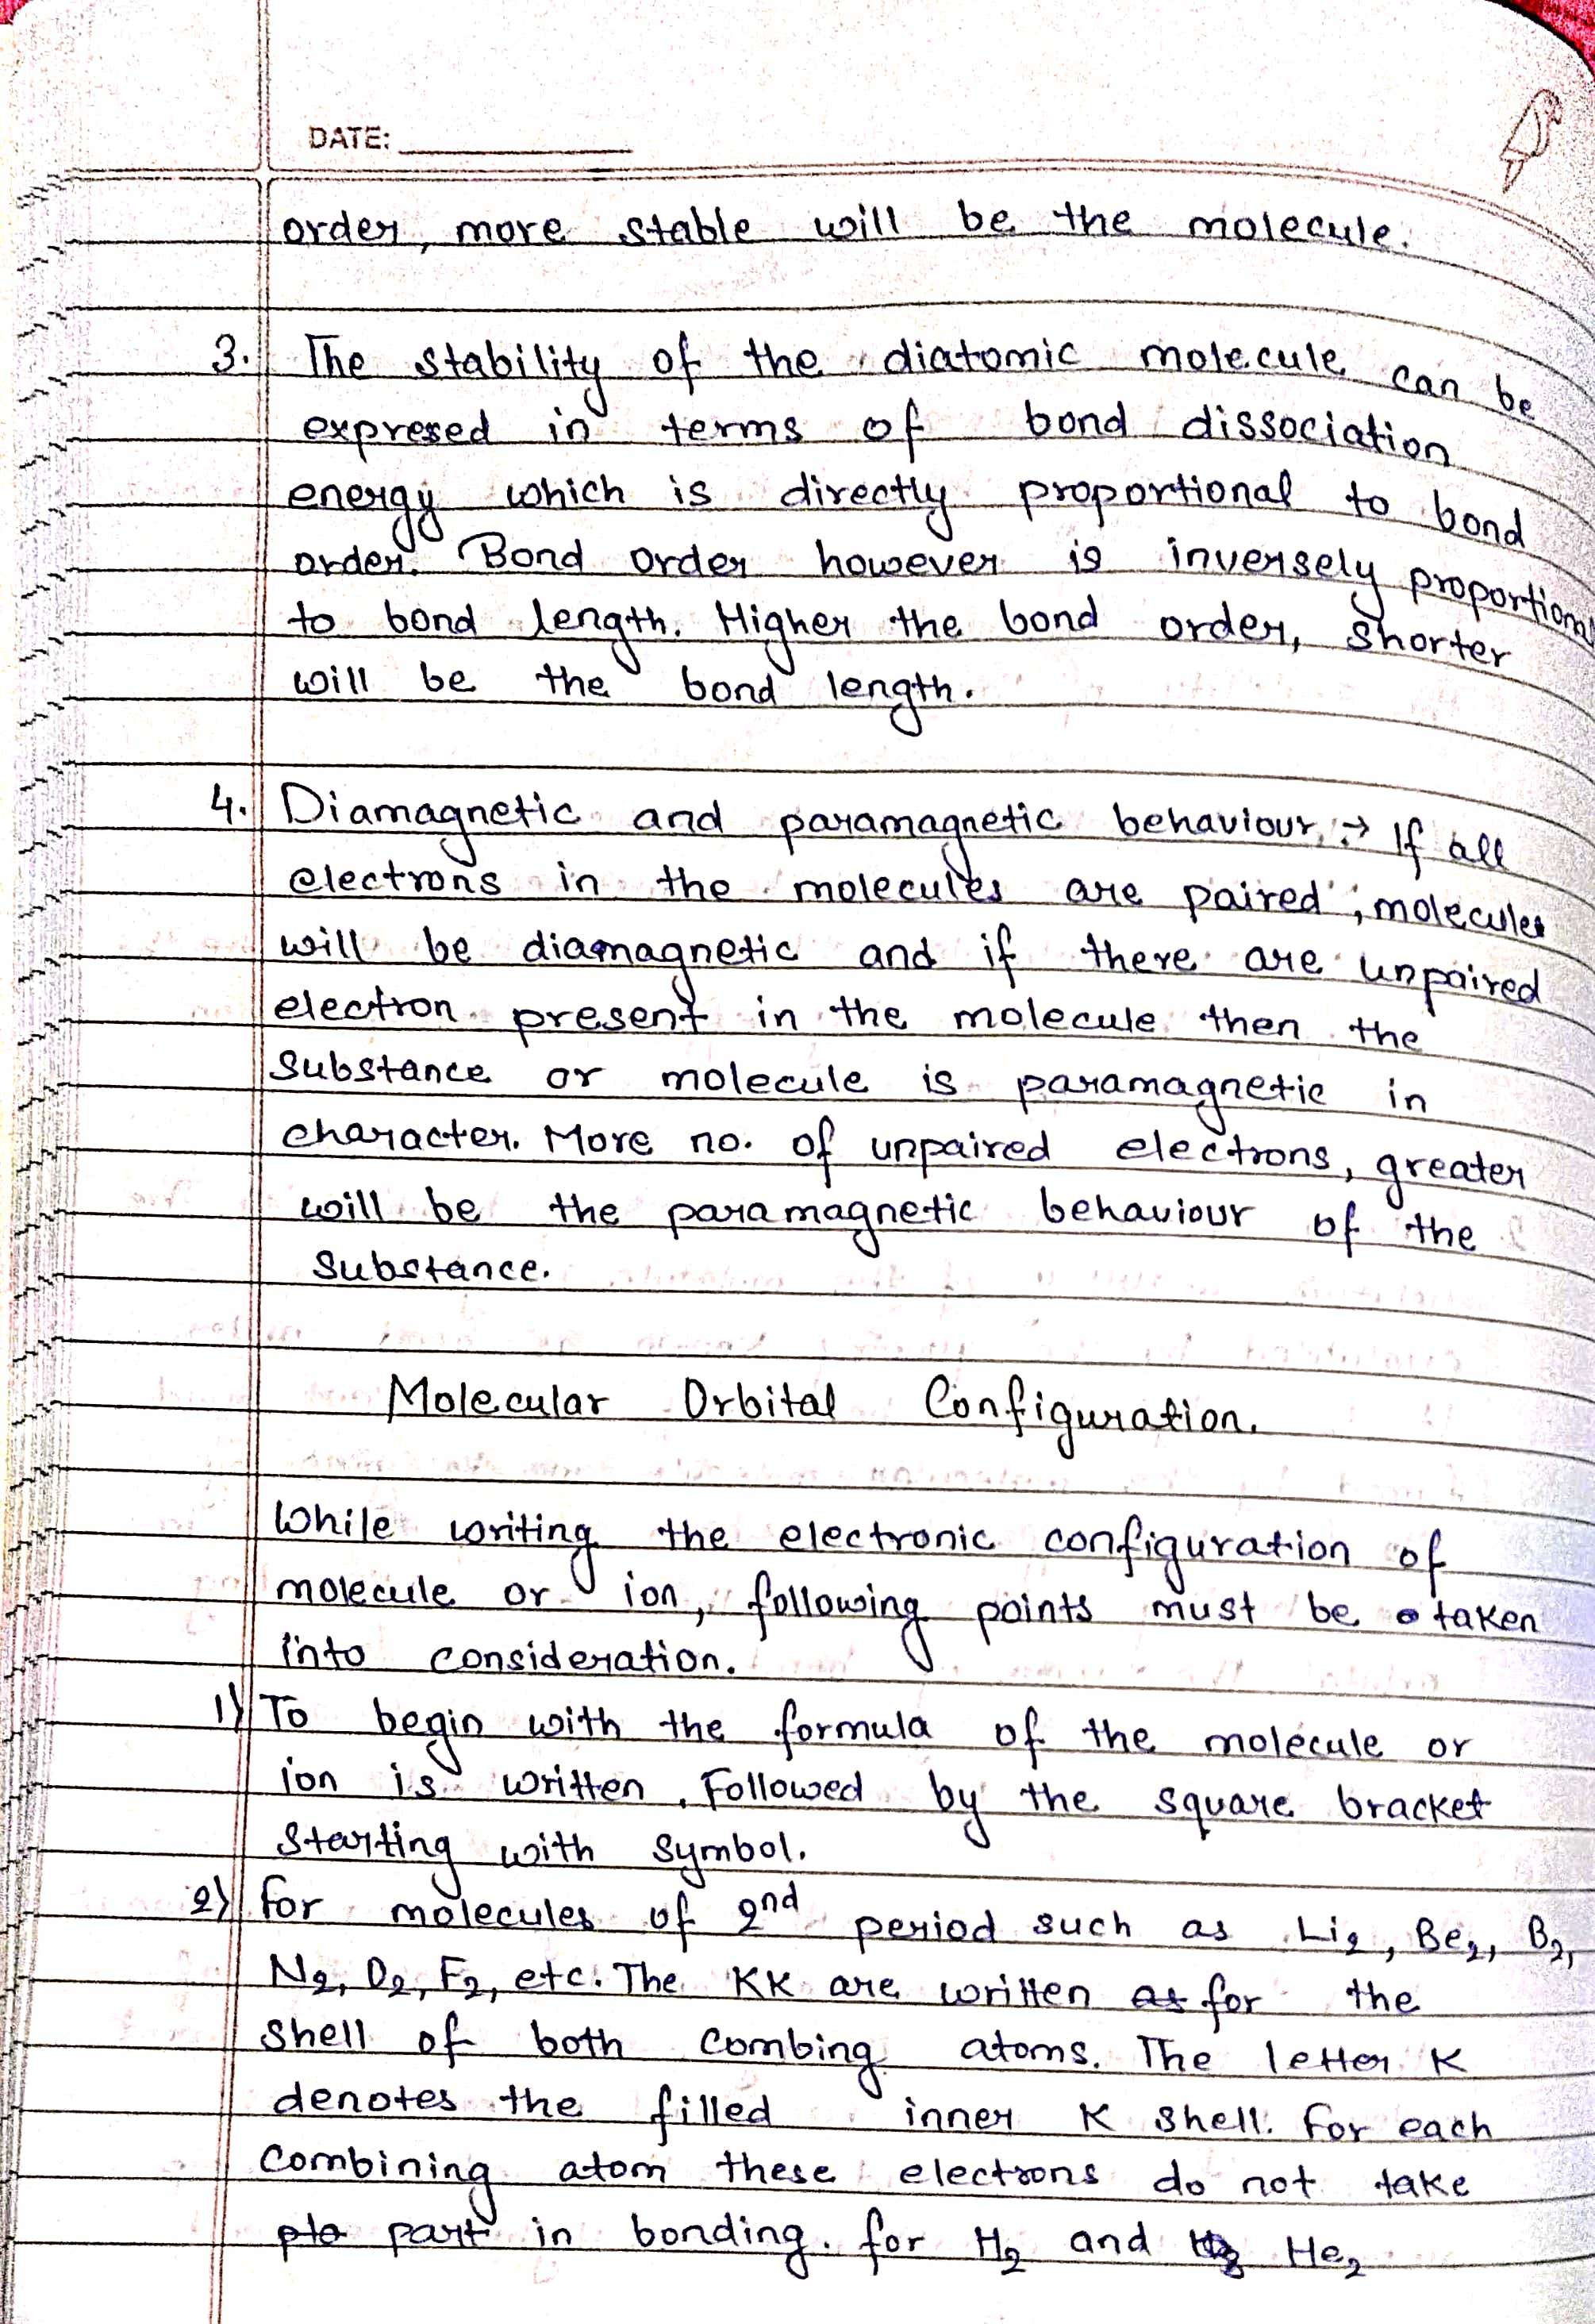 DATE:
order, more stable will be the molecule.
3. The stability of the diatomic molecule can be
expresed in terms of bond dissociation
energy which is directly proportional to bond
order. Bond order however is inversely proportional
to bond length. Higher the bond order, shorter
will be the bond length.
4. Diamagnetic and paramagnetic behaviour :→ If all
electrons in the molecules are paired, molecules
will be diamagnetic and if there are unpaired
electron present in the molecule then the
substance or molecule is paramagnetic in
character. More no. of unpaired electrons, greater
will be the paramagnetic behaviour of the
substance.
Molecular Orbital Configuration.
While writing the electronic configuration of
molecule or ion, following points must be taken
into consideration.
1) To begin with the formula of the molecule or
ion is written. Followed by the square bracket
starting with symbol.
2) for molecules of 2nd period such as Li2, Be2, B2,
N2, O2, F2, etc. The KK are written as for the
shell of both combing atoms. The letter K
denotes the filled inner K shell. For each
combining atom these electrons do not take
part in bonding. for H2 and He2